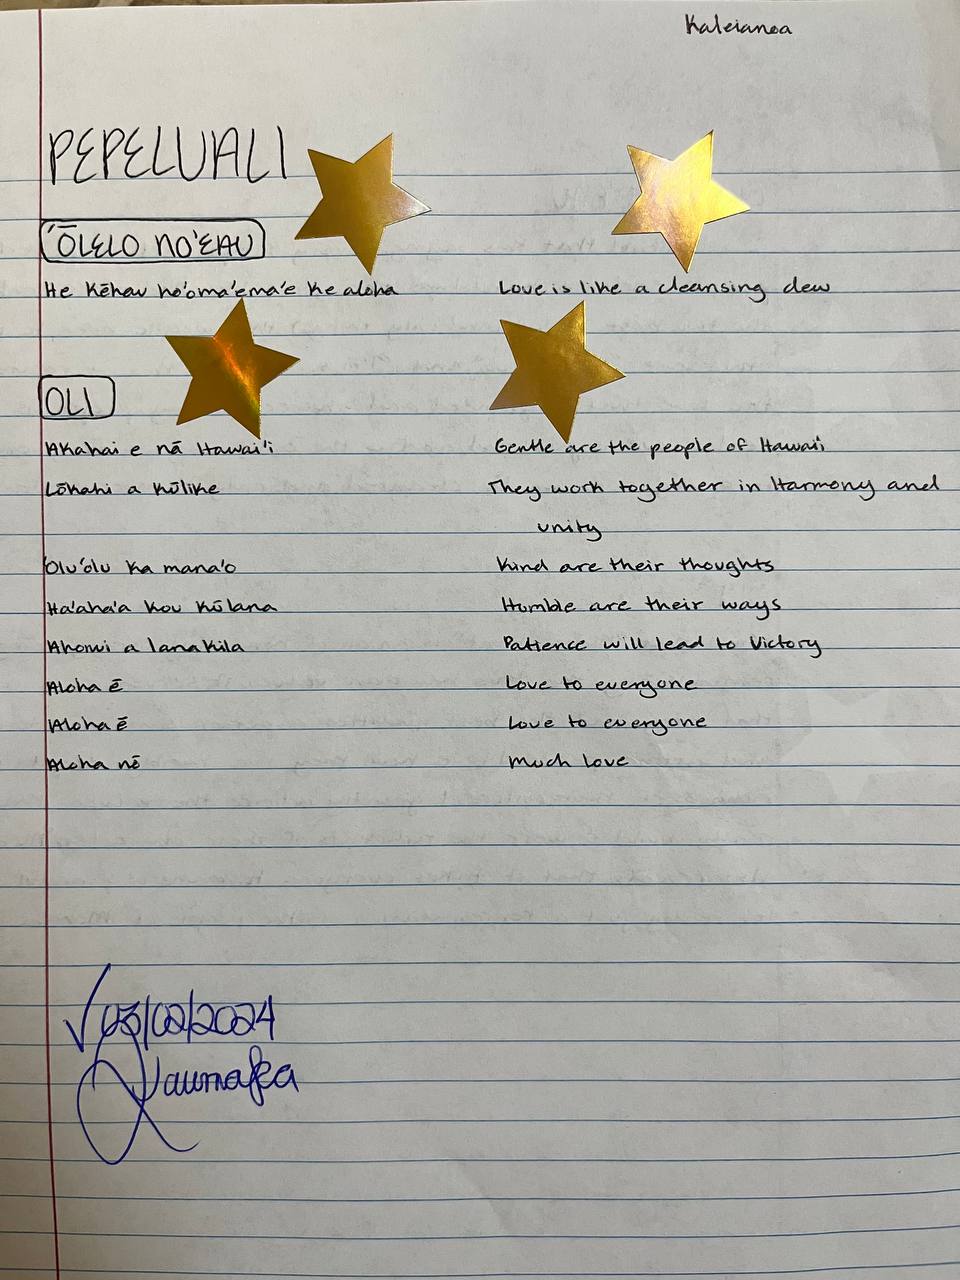 Kaleianoa
PEPELUALI
ʻŌLELO NOʻEAU
He Kēhau hoʻomaʻemaʻe ke aloha    Love is like a cleansing dew
OLI
Akahai e nā Hawaiʻi    Gentle are the people of Hawaiʻi
Lōkahi a kūlike    They work together in Harmony and
unity
Oluʻolu ka manaʻo    Kind are their thoughts
Haʻahaʻa kou kūlana    Humble are their ways
Ahonui a lanakila    Patience will lead to Victory
Aloha ē    Love to everyone
Aloha ē    Love to everyone
Aloha nō    Much love
√ 03/02/2024